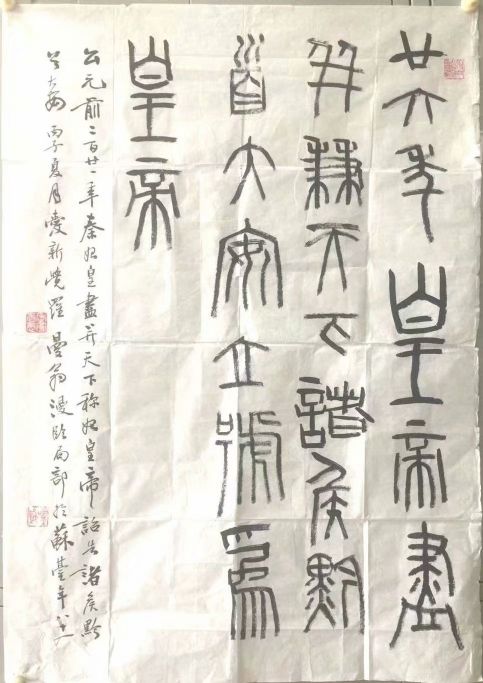 廿六年皇帝盡
并兼天下諸矦黔
首大安立號為
皇帝
公元前二百廿一年秦始皇盡并天下称始皇帝詔告諸矦黔
首大安丙子夏月愛新覺羅曼翁漫臨局部於蘇臺年八一